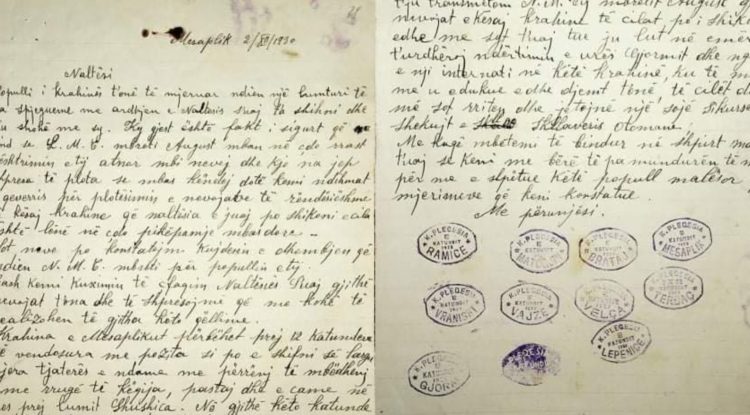 Mesaplik 2/XI/1930
Naltësi
Populli i krahinës t'onë të mjeruar ndien një lumturi të
spjegueme me ardhjen e Naltësis Suaj t'a shihni dhe
shohë me sy. Ky gjest është fakt i sigurt që
L. M. T. mbreti August mban në çdo rrast
e tij atnor mbi nevej dhe kjo na jep
shprese të plota se mbas këndej do të kemi ndihmat
qeverris për plotësimin e nevojave të rëndësishme
kësaj krahine që naltësia e juaj po shikoni e cila
është lënë në çdo pikëpamje mbasdore –
Sot neve po konstatojm kujdesin e dhembjen që
ndien N. M. T. mbreti për popullin e tij.
kemi kuxumin të çfaqim Naltësis Suaj gjithë
t'ona dhe të shpresojmë që me kohë të
realizohen të gjitha këto qëllime.
Krahina e Mesaplikut përbëhet prej 12 katundeve
të vendosura me pozita si po e shifni së largu
njera tjatërës e ndame me përrenj të mbëdhenj
me rrugë të këqija, pastaj dhe e came në
mes prej lumit Shushica. Në gjithë këto katunde
transmetom N. M. Tij mbretit August
nevojat e kësaj krahine të cilat po i shikoni
edhe me sot tuaj tue ju lut në emër
t'urdhëroj ndërtimin e urës Gjormit dhe
e nji internati në këtë krahinë, ku të
me u edukue edhe djemt tënë të cilët
më sot rriten dhe jetojnë një sojë sikurse
shekujt e Skllaveris otomane.
Me kaqë mbetemi të bindur në shpirt
tuaj se keni me bërë të pamundurën të
për me e shpëtue këtë popull malësor
mjerimeve që keni konstatue.
Me përunjësi.
K. PLEQESIA E KATUNDIT RAMICE
K. PLEQESIA E KATUNDIT
K. PLEQESIA E KATUNDIT BRATAJ
K. PLEQESIA E KATUNDIT MESAPLIK
K. PLEQESIA E KATUNDIT VRANISHT
K. PLEQESIA E KATUNDIT VAJZE
K. PLEQESIA E KATUNDIT VELÇA
K. PLEQESIA TERBAÇ
K. PLEQESIA E KATUNDIT LEPENICE
K. PLEQESIA E KATUNDIT GJORM